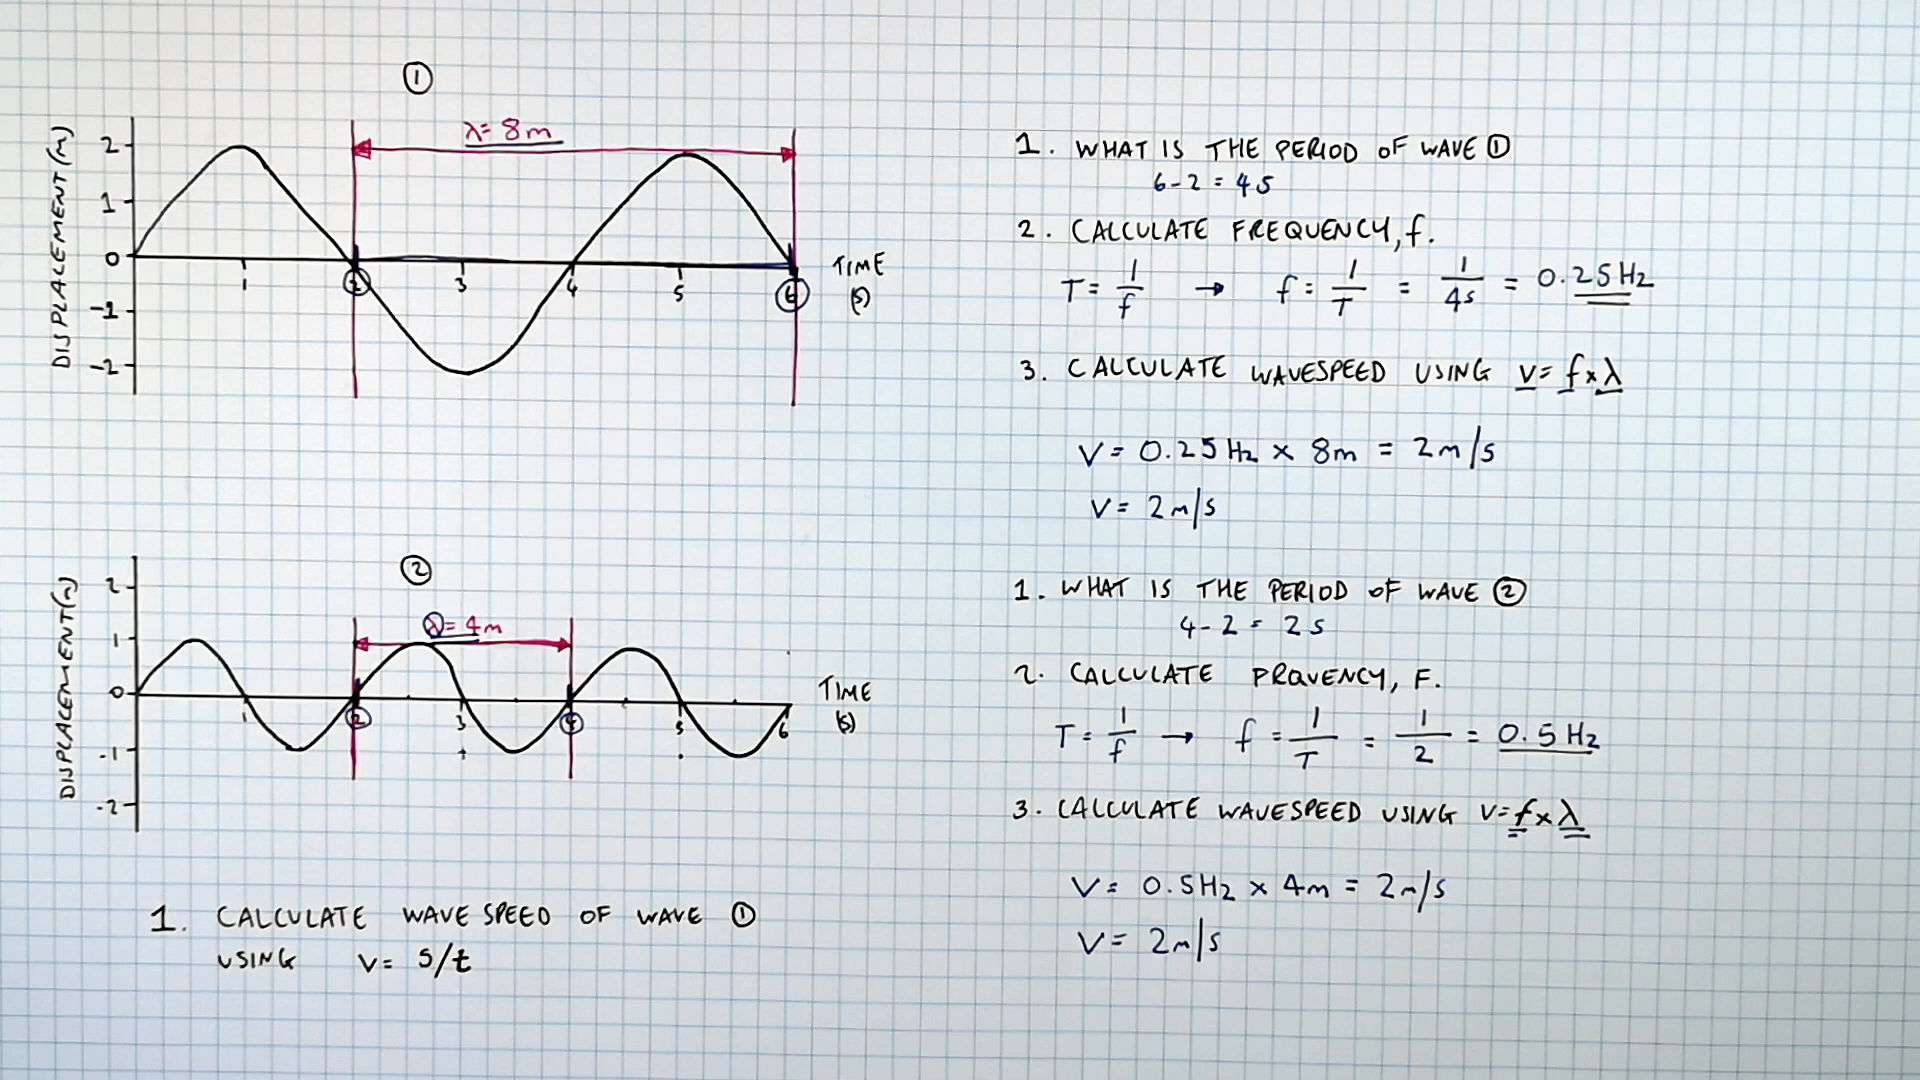 ①
DISPLACEMENT (m)
2
1
0
-1
-2
λ= 8m
1 2 3 4 5 6
TIME
(s)
1. WHAT IS THE PERIOD OF WAVE ①
6-2 = 4s
2. CALCULATE FREQUENCY, f.
T= 1/f → f = 1/T = 1/4s = 0.25Hz
3. CALCULATE WAVESPEED USING v= f x λ
V= 0.25Hz x 8m = 2m/s
V= 2m/s
②
DISPLACEMENT(m)
2
1
0
-1
-2
λ= 4m
1 2 3 4 5 6
TIME
(s)
1. WHAT IS THE PERIOD OF WAVE ②
4-2 = 2s
2. CALCULATE FRQUENCY, F.
T= 1/f → f = 1/T = 1/2 = 0.5 Hz
3. CALCULATE WAVESPEED USING V= f x λ
V= 0.5Hz x 4m = 2m/s
V= 2m/s
1. CALCULATE WAVE SPEED OF WAVE ①
USING V= S/t